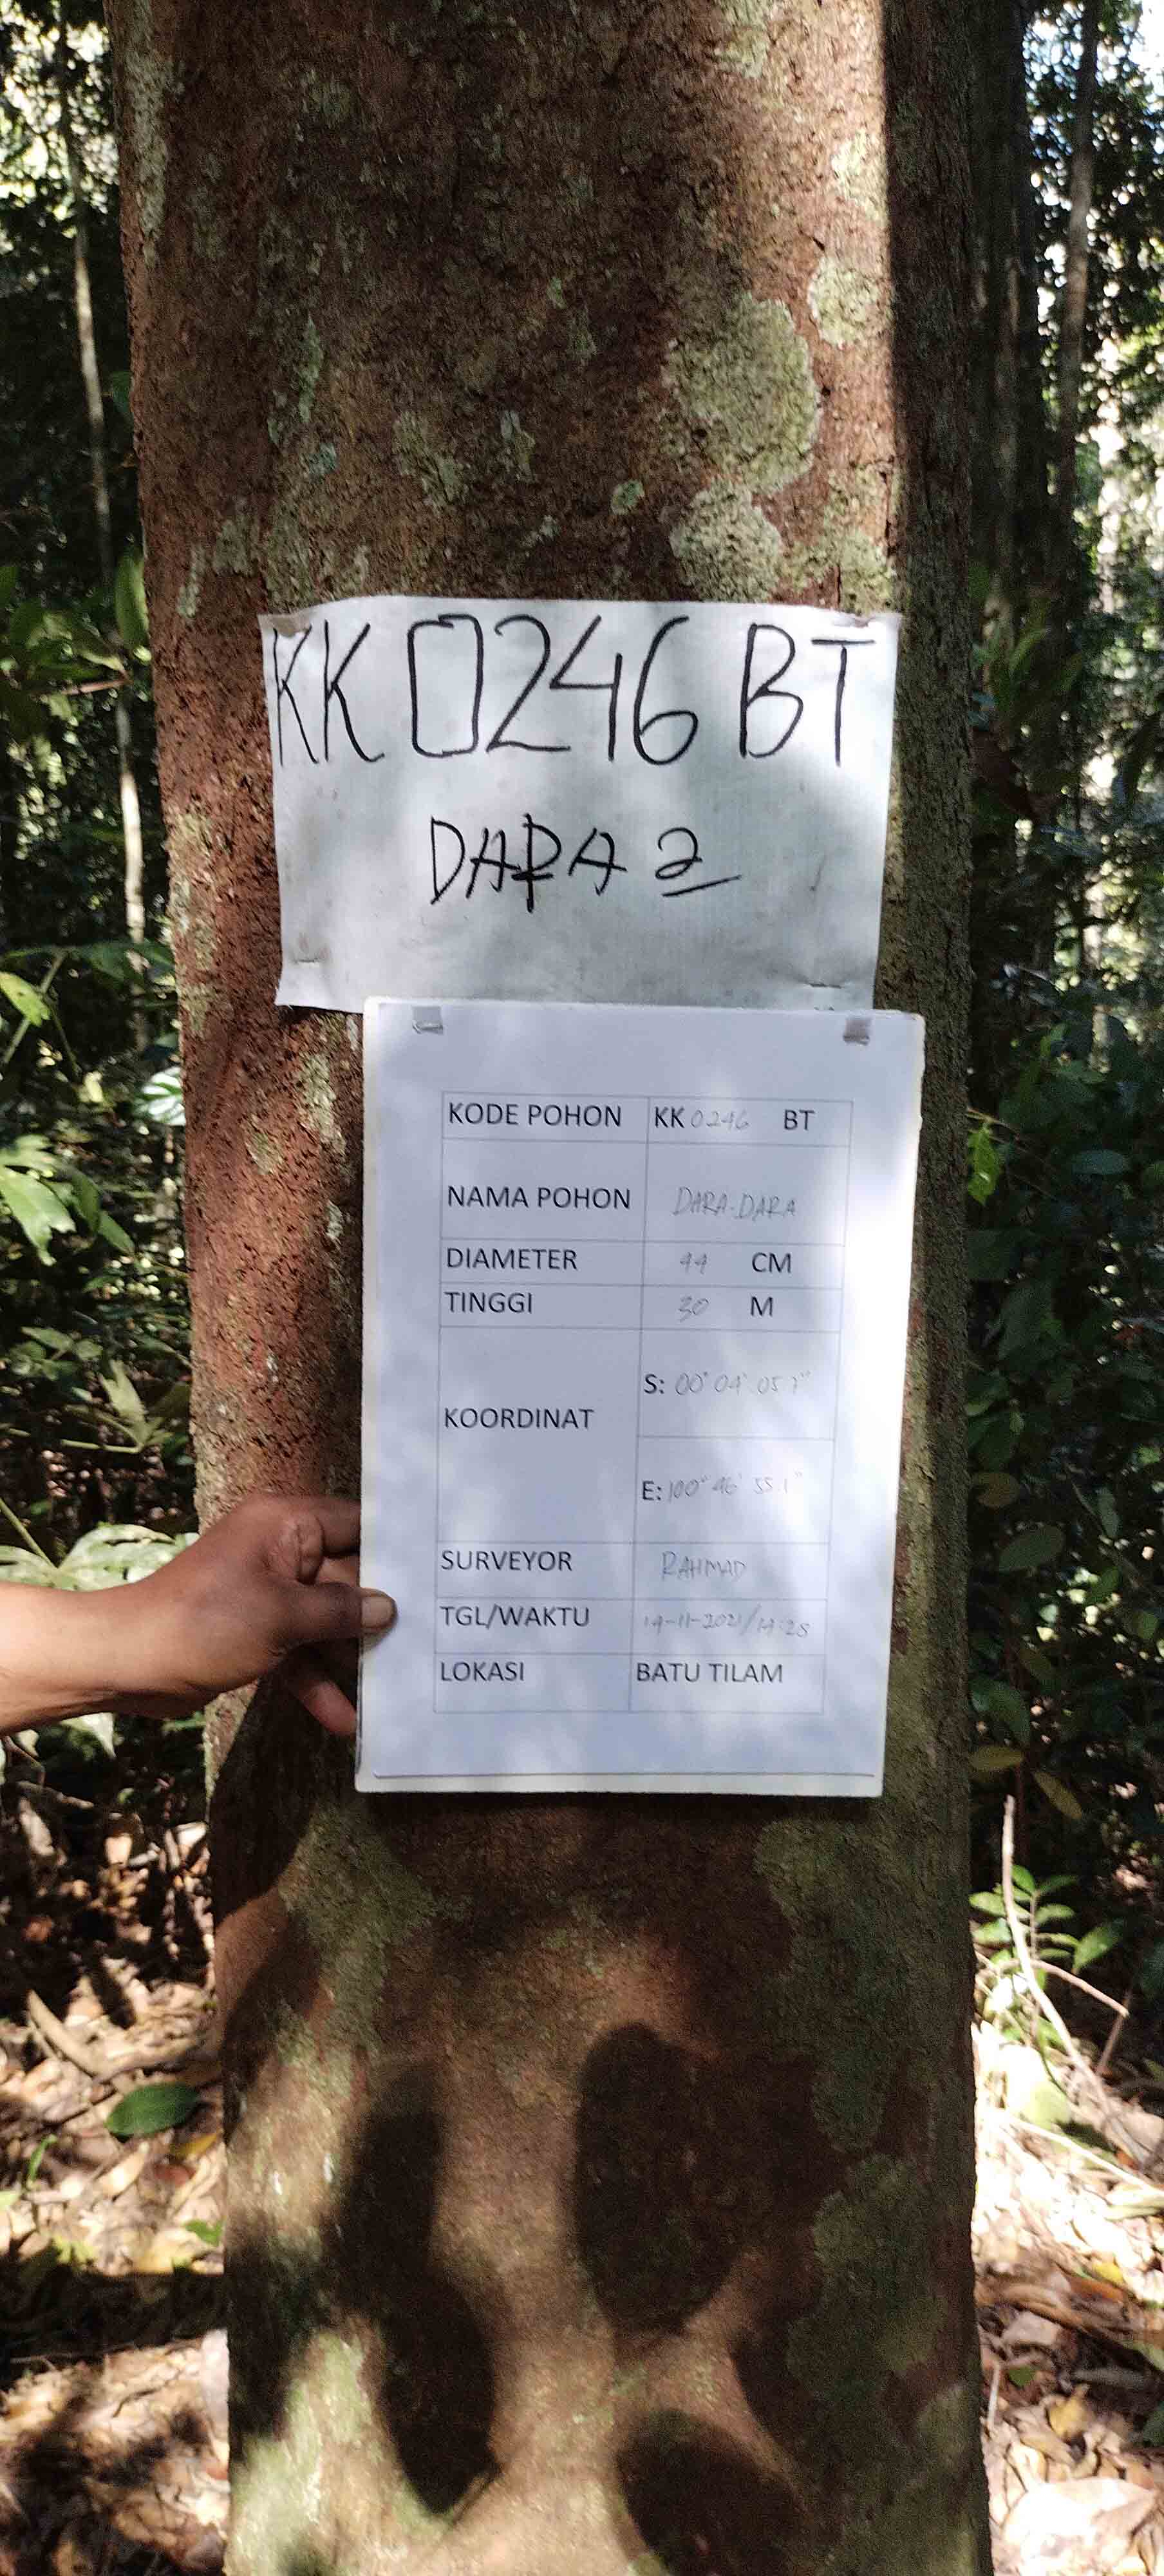 KK 0246 BT
DARA 2
KODE POHON KK 0246 BT
NAMA POHON DARA-DARA
DIAMETER 44 CM
TINGGI 30 M
KOORDINAT
S: 00° 04'
E: 100° 46' 55.1"
SURVEYOR RAHMAD
TGL/WAKTU 14-11-2021/14:28
LOKASI BATU TILAM